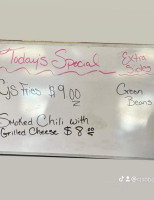 Today's Special
Extra Sides
CJS Fries $9.00
Green Beans
Smoked Chili with
Grilled Cheese $8.00